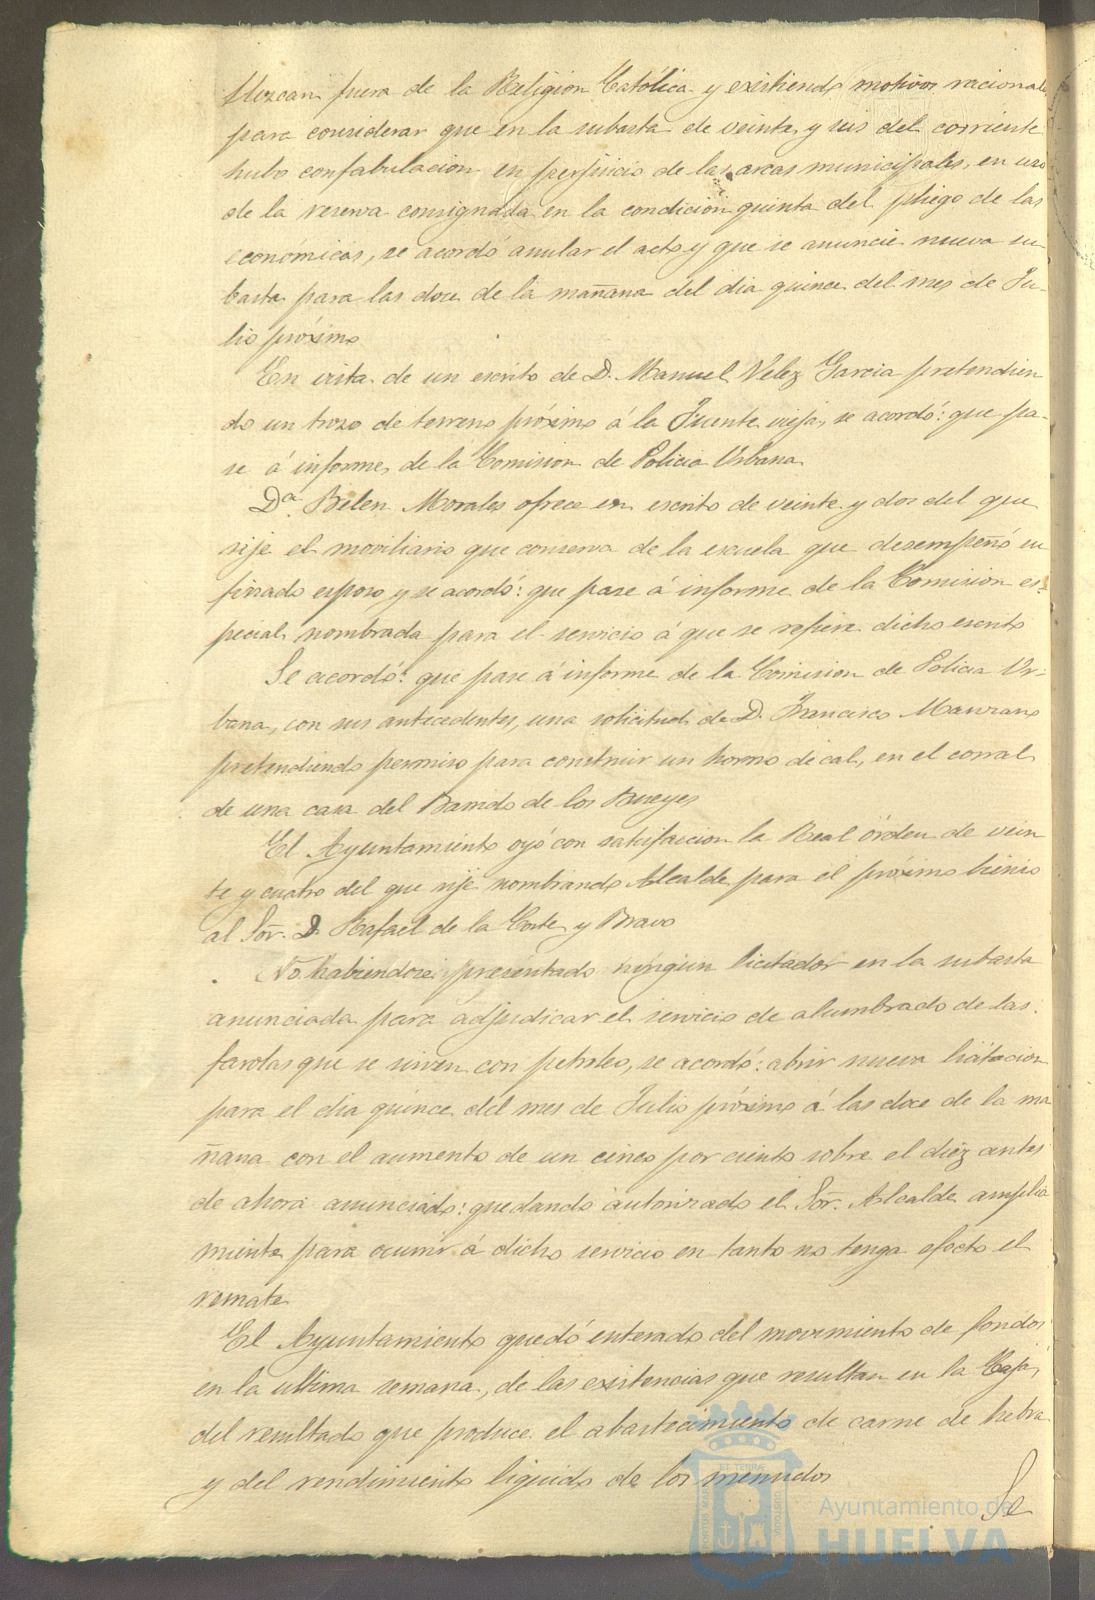 llezcan fuera de la Religion Católica y existiendo motivos racional
para considerar que en la subasta de veinte y seis del corriente
hubo confabulacion en perjuicio de las arcas municipales, en uso
de la reserva consignada en la condicion quinta del pliego de las
económicas, se acordó anular el acto y que se anuncie nueva su
basta para las doce de la mañana del dia quince del mes de Ju-
lio próximo
En vista de un escrito de D. Manuel Velez Garcia pretendien
do un trozo de terreno próximo á la Fuente vieja, se acordó: que pa-
se á informe de la Comision de Policia Urbana
Dª Belen Morales ofrece en escrito de veinte y dos del que
rije el moviliario que conserva de la escuela que desempeñó su
finado esposo, y se acordó: que pase á informe de la Comision es-
pecial nombrada para el servicio á que se refiere dicho escrito
Se acordó: que pase á informe de la Comision de Policia Ur-
bana, con sus antecedentes, una solicitud de D. Francisco Manzano
pretendiendo permiso para construir un horno de cal, en el corral
de una casa del Barrido de los Bueyes
El Ayuntamiento oyó con satisfaccion la Real órden de vein
te y cuatro del que rije nombrando Alcalde para el próximo bienio
al Sor. D. Rafael de la Corte y Bravo
No habiendose presentado ningun licitador en la subasta
anunciada para adjudicar el servicio de alumbrado de las
farolas que se sirven con petroleo, se acordó: abrir nueva licitacion
para el dia quince del mes de Julio próximo á las doce de la ma
ñana con el aumento de un cinco por ciento sobre el diez antes
de ahora anunciado: quedando autorizado el Sor. Alcalde amplia
mente para ocurrir á dicho servicio en tanto no tenga efecto el
remate
El Ayuntamiento quedó enterado del movimiento de fondos
en la ultima semana, de las existencias que resultan en la Caja,
del resultado que produce el abastecimiento de carne de hebra
y del rendimiento liquido de los menudos
Se
Ayuntamiento de
HUELVA